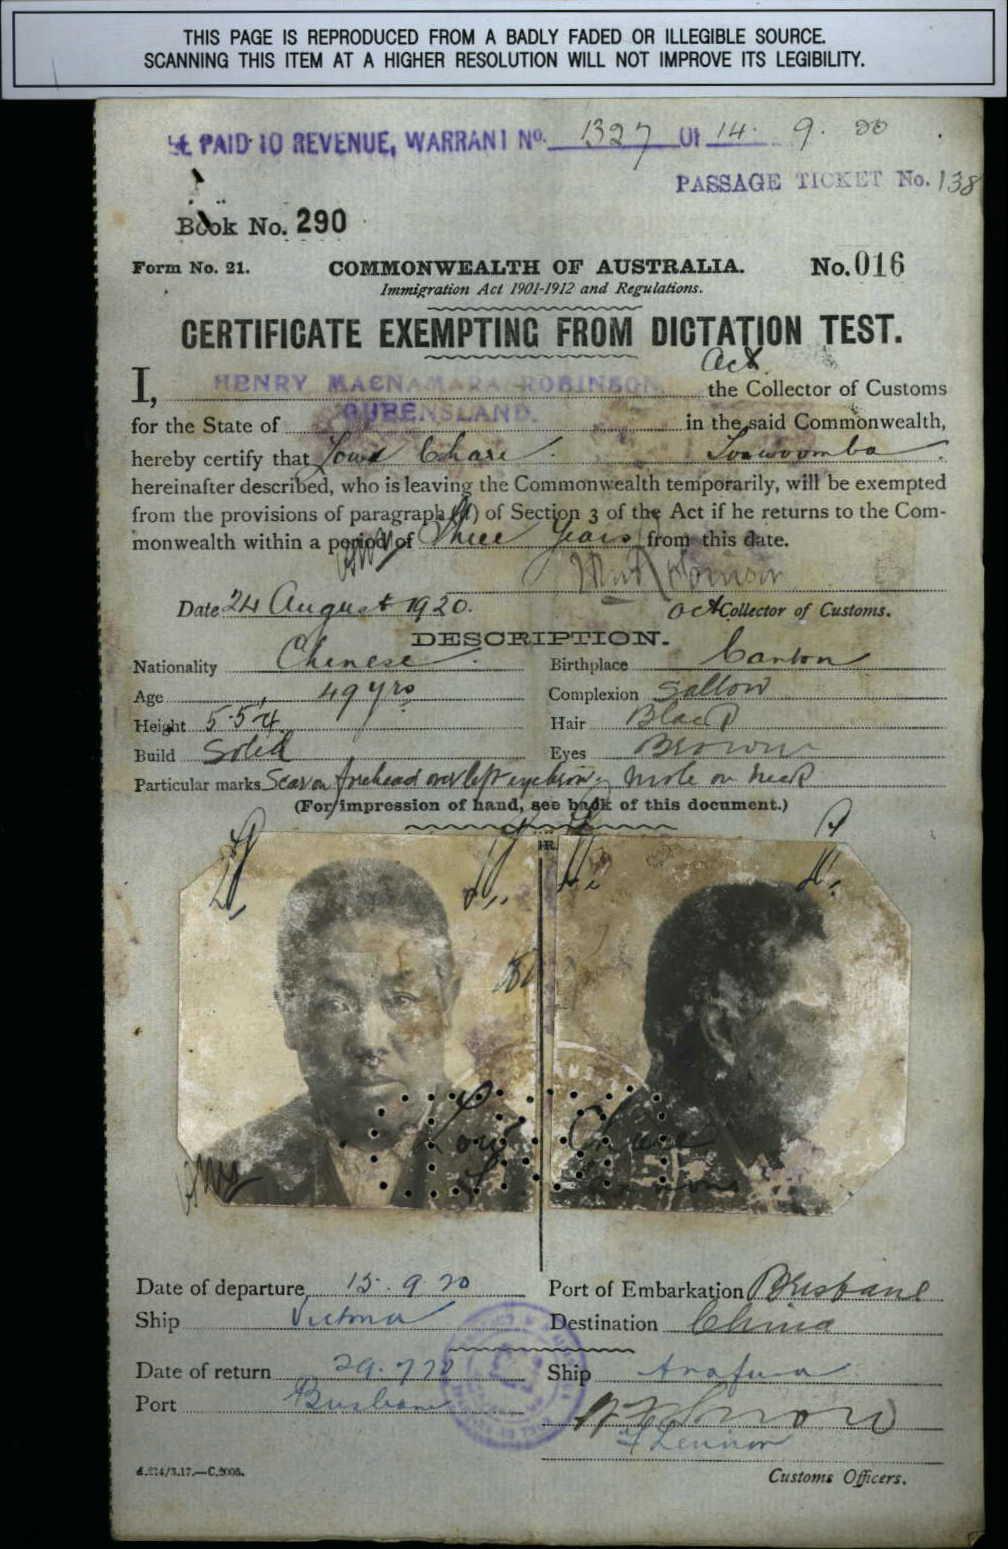 THIS PAGE IS REPRODUCED FROM A BADLY FADED OR ILLEGIBLE SOURCE.
SCANNING THIS ITEM AT A HIGHER RESOLUTION WILL NOT IMPROVE ITS LEGIBILITY.
PAID TO REVENUE, WARRANT No. 1327 Of 14. 9. 20
PASSAGE TICKET No. 138
Book No. 290
Form No. 21. COMMONWEALTH OF AUSTRALIA. No. 016
Immigration Act 1901-1912 and Regulations.
CERTIFICATE EXEMPTING FROM DICTATION TEST.
Act
I, HENRY MACNAMARA ROBINSON the Collector of Customs
QUEENSLAND.
for the State of in the said Commonwealth,
hereby certify that Chase Toowoomba
hereinafter described, who is leaving the Commonwealth temporarily, will be exempted
from the provisions of paragraph (a) of Section 3 of the Act if he returns to the Com-
monwealth within a period of Three Years from this date.
Date 24 August 1920. Act Collector of Customs.
DESCRIPTION.
Nationality Chinese Birthplace Canton
Age 49 yrs Complexion Sallow
Height 5' 5¼ Hair Black
Build Solid Eyes Brown
Particular marks Scar on forehead over left eyebrow, mole on neck
(For impression of hand, see back of this document.)
HR.
Date of departure 15. 9 20 Port of Embarkation Brisbane
Ship Victoria Destination China
Date of return 29. 7 Ship Arafura
Port Brisbane
Customs Officers.